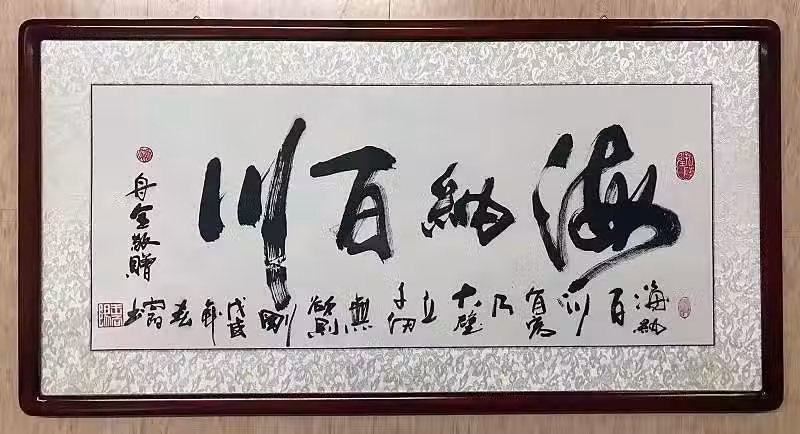 海納百川
海納百川有容乃大壁立千仞無欲則剛戊戌年春
敬贈